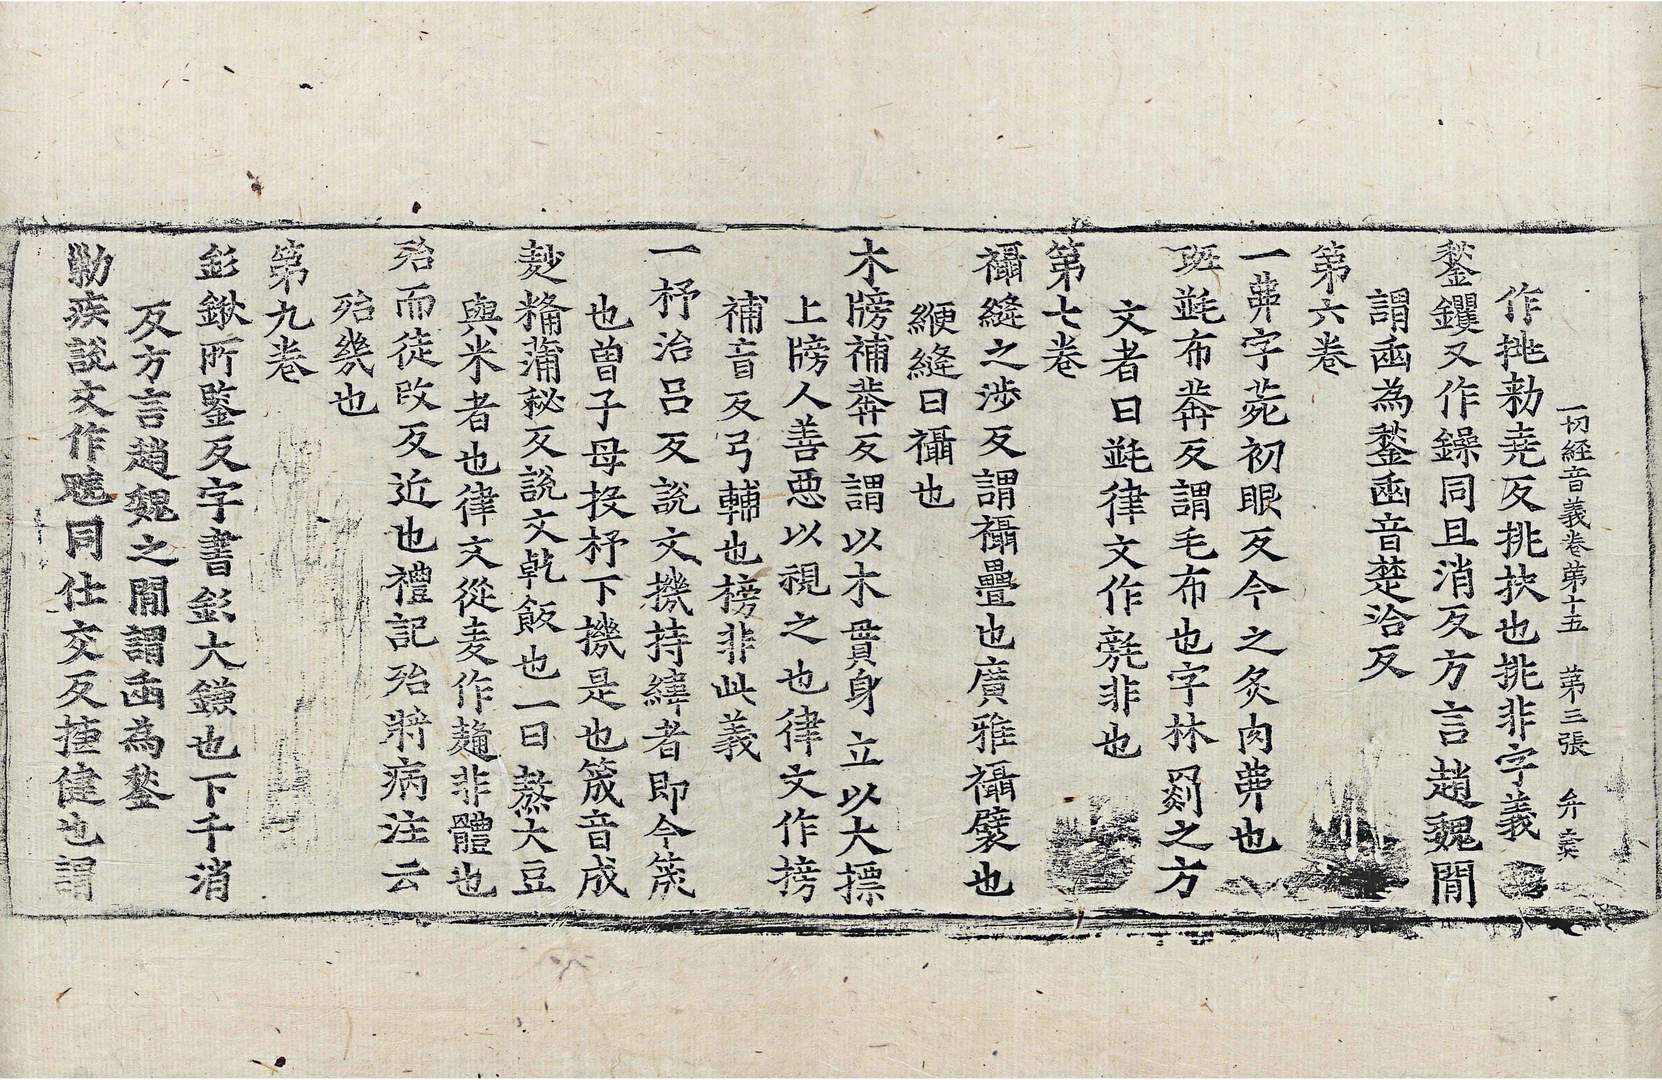 一切經音義卷第十五　第三張　弁
作挑勑堯反挑抉也挑非字義
鍫钁又作鐰同且消反方言趙魏閒
謂臿為鍫臿音楚洽反
第六卷
一丳字苑初眼反今之炙肉丳也
斑㲠布莽反謂毛布也字林罽之方
文者曰㲠律文作㲯非也
第七卷
襵縫之涉反謂襵疊也廣雅襵襞也
緶縫曰襵也
木牓補莽反謂以木貫身立以大摽
上牓人善惡以視之也律文作搒
補盲反弓輔也榜非此義
一杼治呂反說文機持緯者即今筬
也曾子母投杼下機是也筬音成
麨糒蒲秘反說文乾飯也一曰熬大豆
與米者也律文從麦作𪍿非體也
殆而徒改反近也禮記殆將病注云
殆幾也
第九卷
釤鍬所鑒反字書釤大鎌也下千消
反方言趙魏之閒謂臿為鍫
勦疾說文作𧽼同仕交反捷健也謂